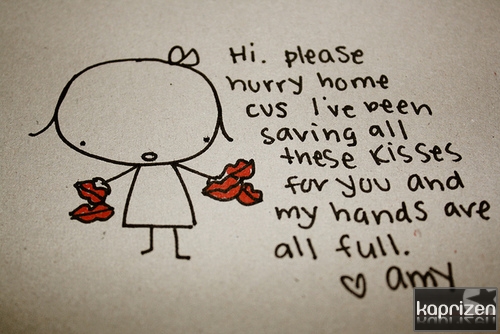 Hi. please
hurry home
cus I've been
saving all
these kisses
for you and
my hands are
all full.
♡ amy
kaprizen